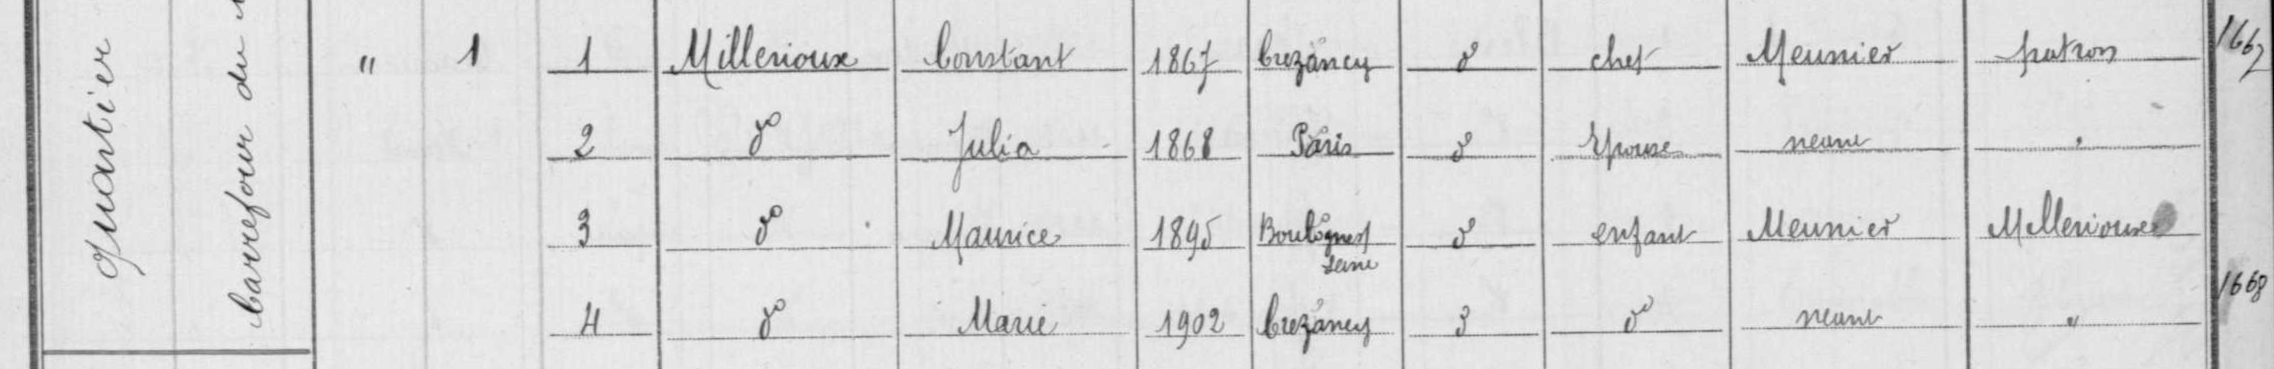 Quartier
Carrefour du
" 1 1 Millerioux Constant 1867 Crezancy d° chef Meunier patron 1667
2 d° Julia 1868 Paris d° Epouse neant "
3 d° Maurice 1895 Boulogne s/ Seine d° enfant Meunier Millerioux
4 d° Marie 1902 Crezancy d° d° neant " 1668